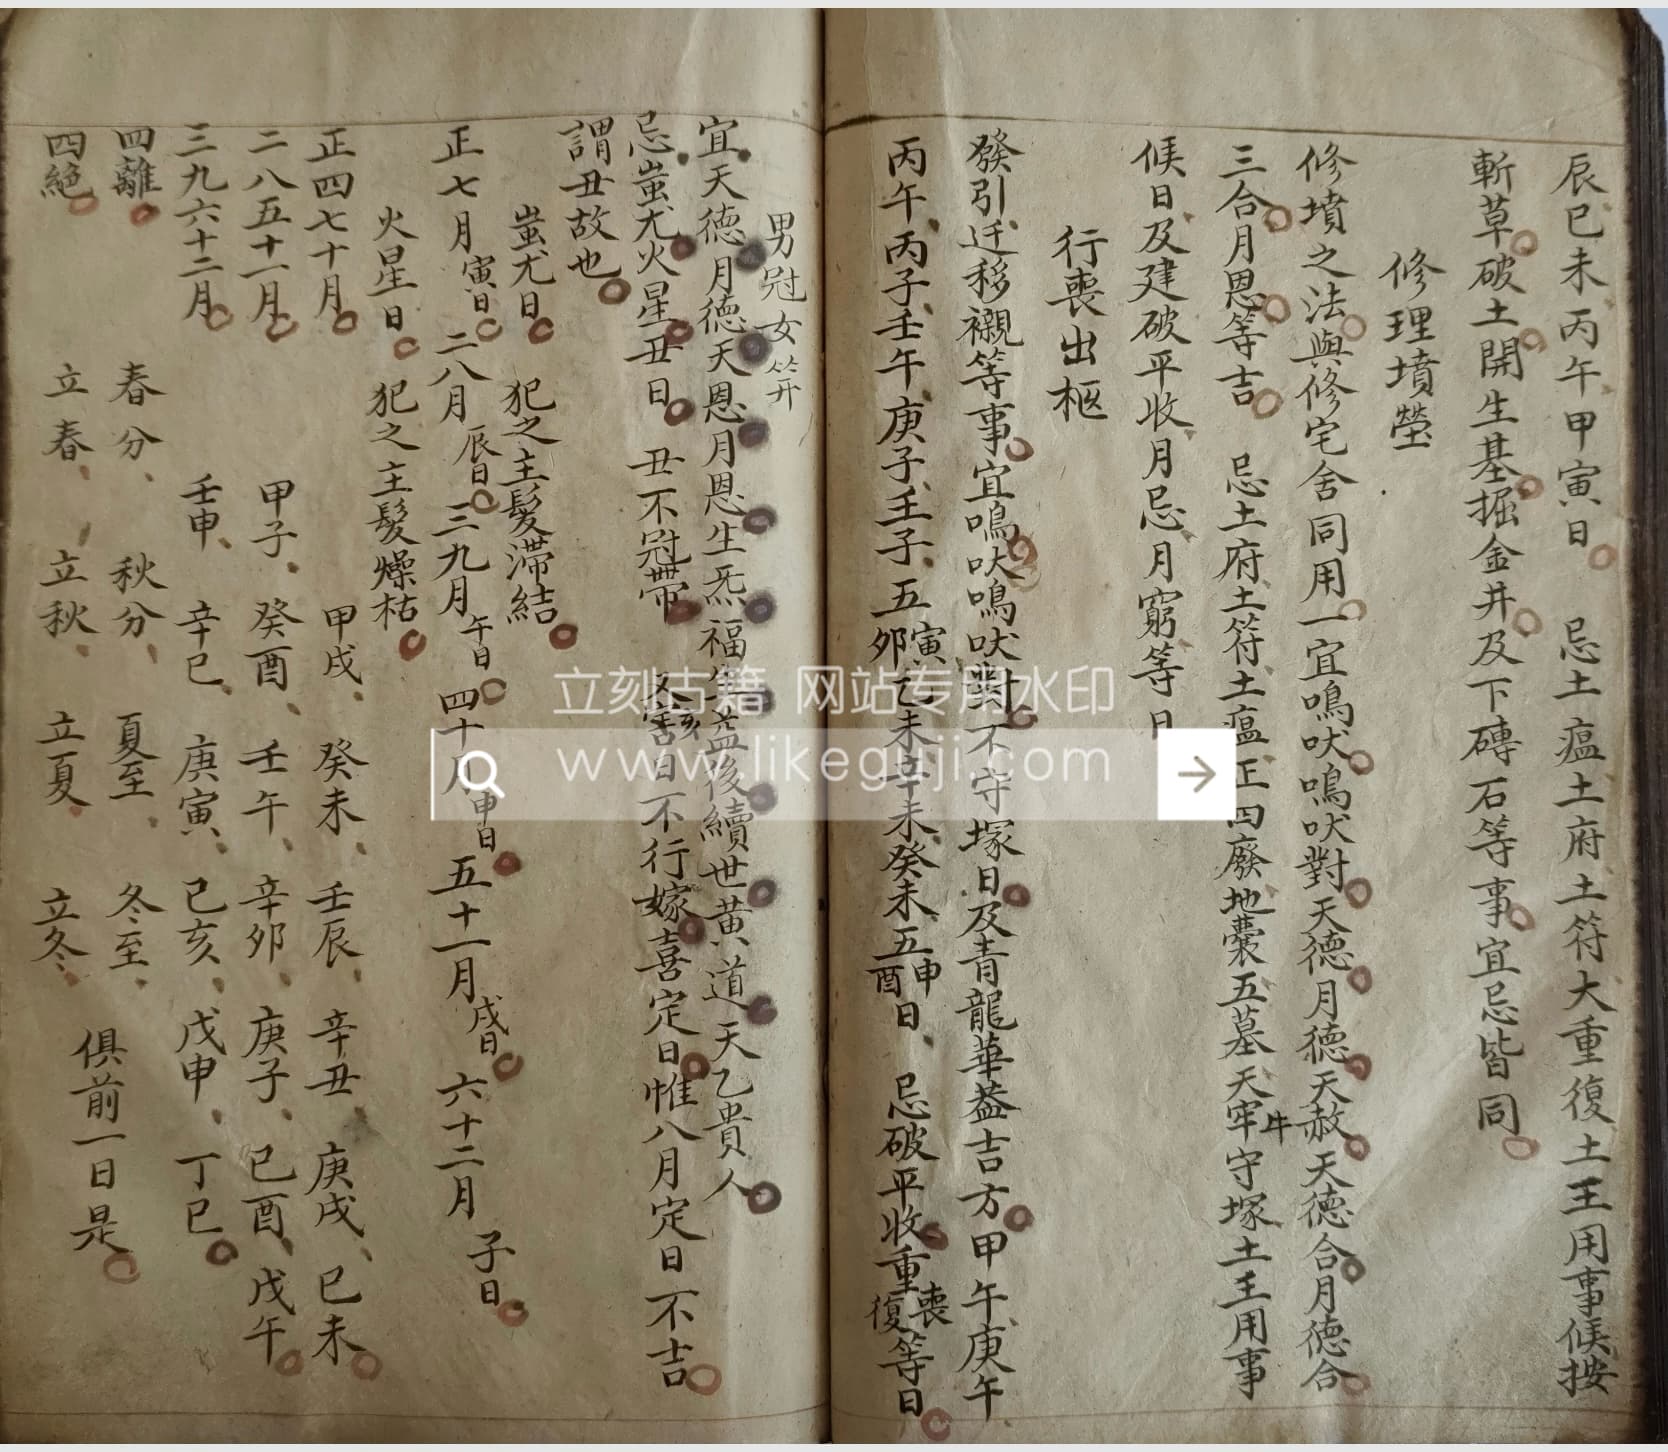 辰巳未丙午甲寅日 忌土瘟土府土符大重復土王用事候按
斬草破土開生基掘金井及下磚石等事宜忌皆同
修理墳塋
修墳之法與修宅舍同用一宜鳴吠鳴吠對天德月德天赦天德合月德合
三合月恩等吉 忌土府土符土瘟正四廢地囊五墓天牢牛守塚土王用事
候日及建破平收月忌月窮等日
行喪出柩
發引迁移櫬等事宜鳴吠鳴吠對不守塚日及青龍華蓋吉方甲午庚午
丙午丙子壬午庚子壬子五寅卯乙未辛未癸未五申酉日忌破平收重喪復等日
男冠女笄
宜天德月德天恩月恩生炁福生益後續世黃道天乙貴人
忌蚩尤火星丑日 丑不冠帶 又亥害日不行嫁喜定日惟八月定日不吉
謂丑故也
蚩尤日 犯之主髮滯結
正七月寅日 二八月辰日 三九月午日 四十月申日 五十一月戌日 六十二月子日
火星日 犯之主髮燥枯
正四七十月 甲戌 癸未 壬辰 辛丑 庚戌 己未
二八五十一月 甲子 癸酉 壬午 辛卯 庚子 己酉 戊午
三九六十二月 壬申 辛巳 庚寅 己亥 戊申 丁巳
四離 春分 秋分 夏至 冬至
俱前一日是
四絕 立春 立秋 立夏 立冬
立刻古籍 网站专用水印
www.likeguji.com